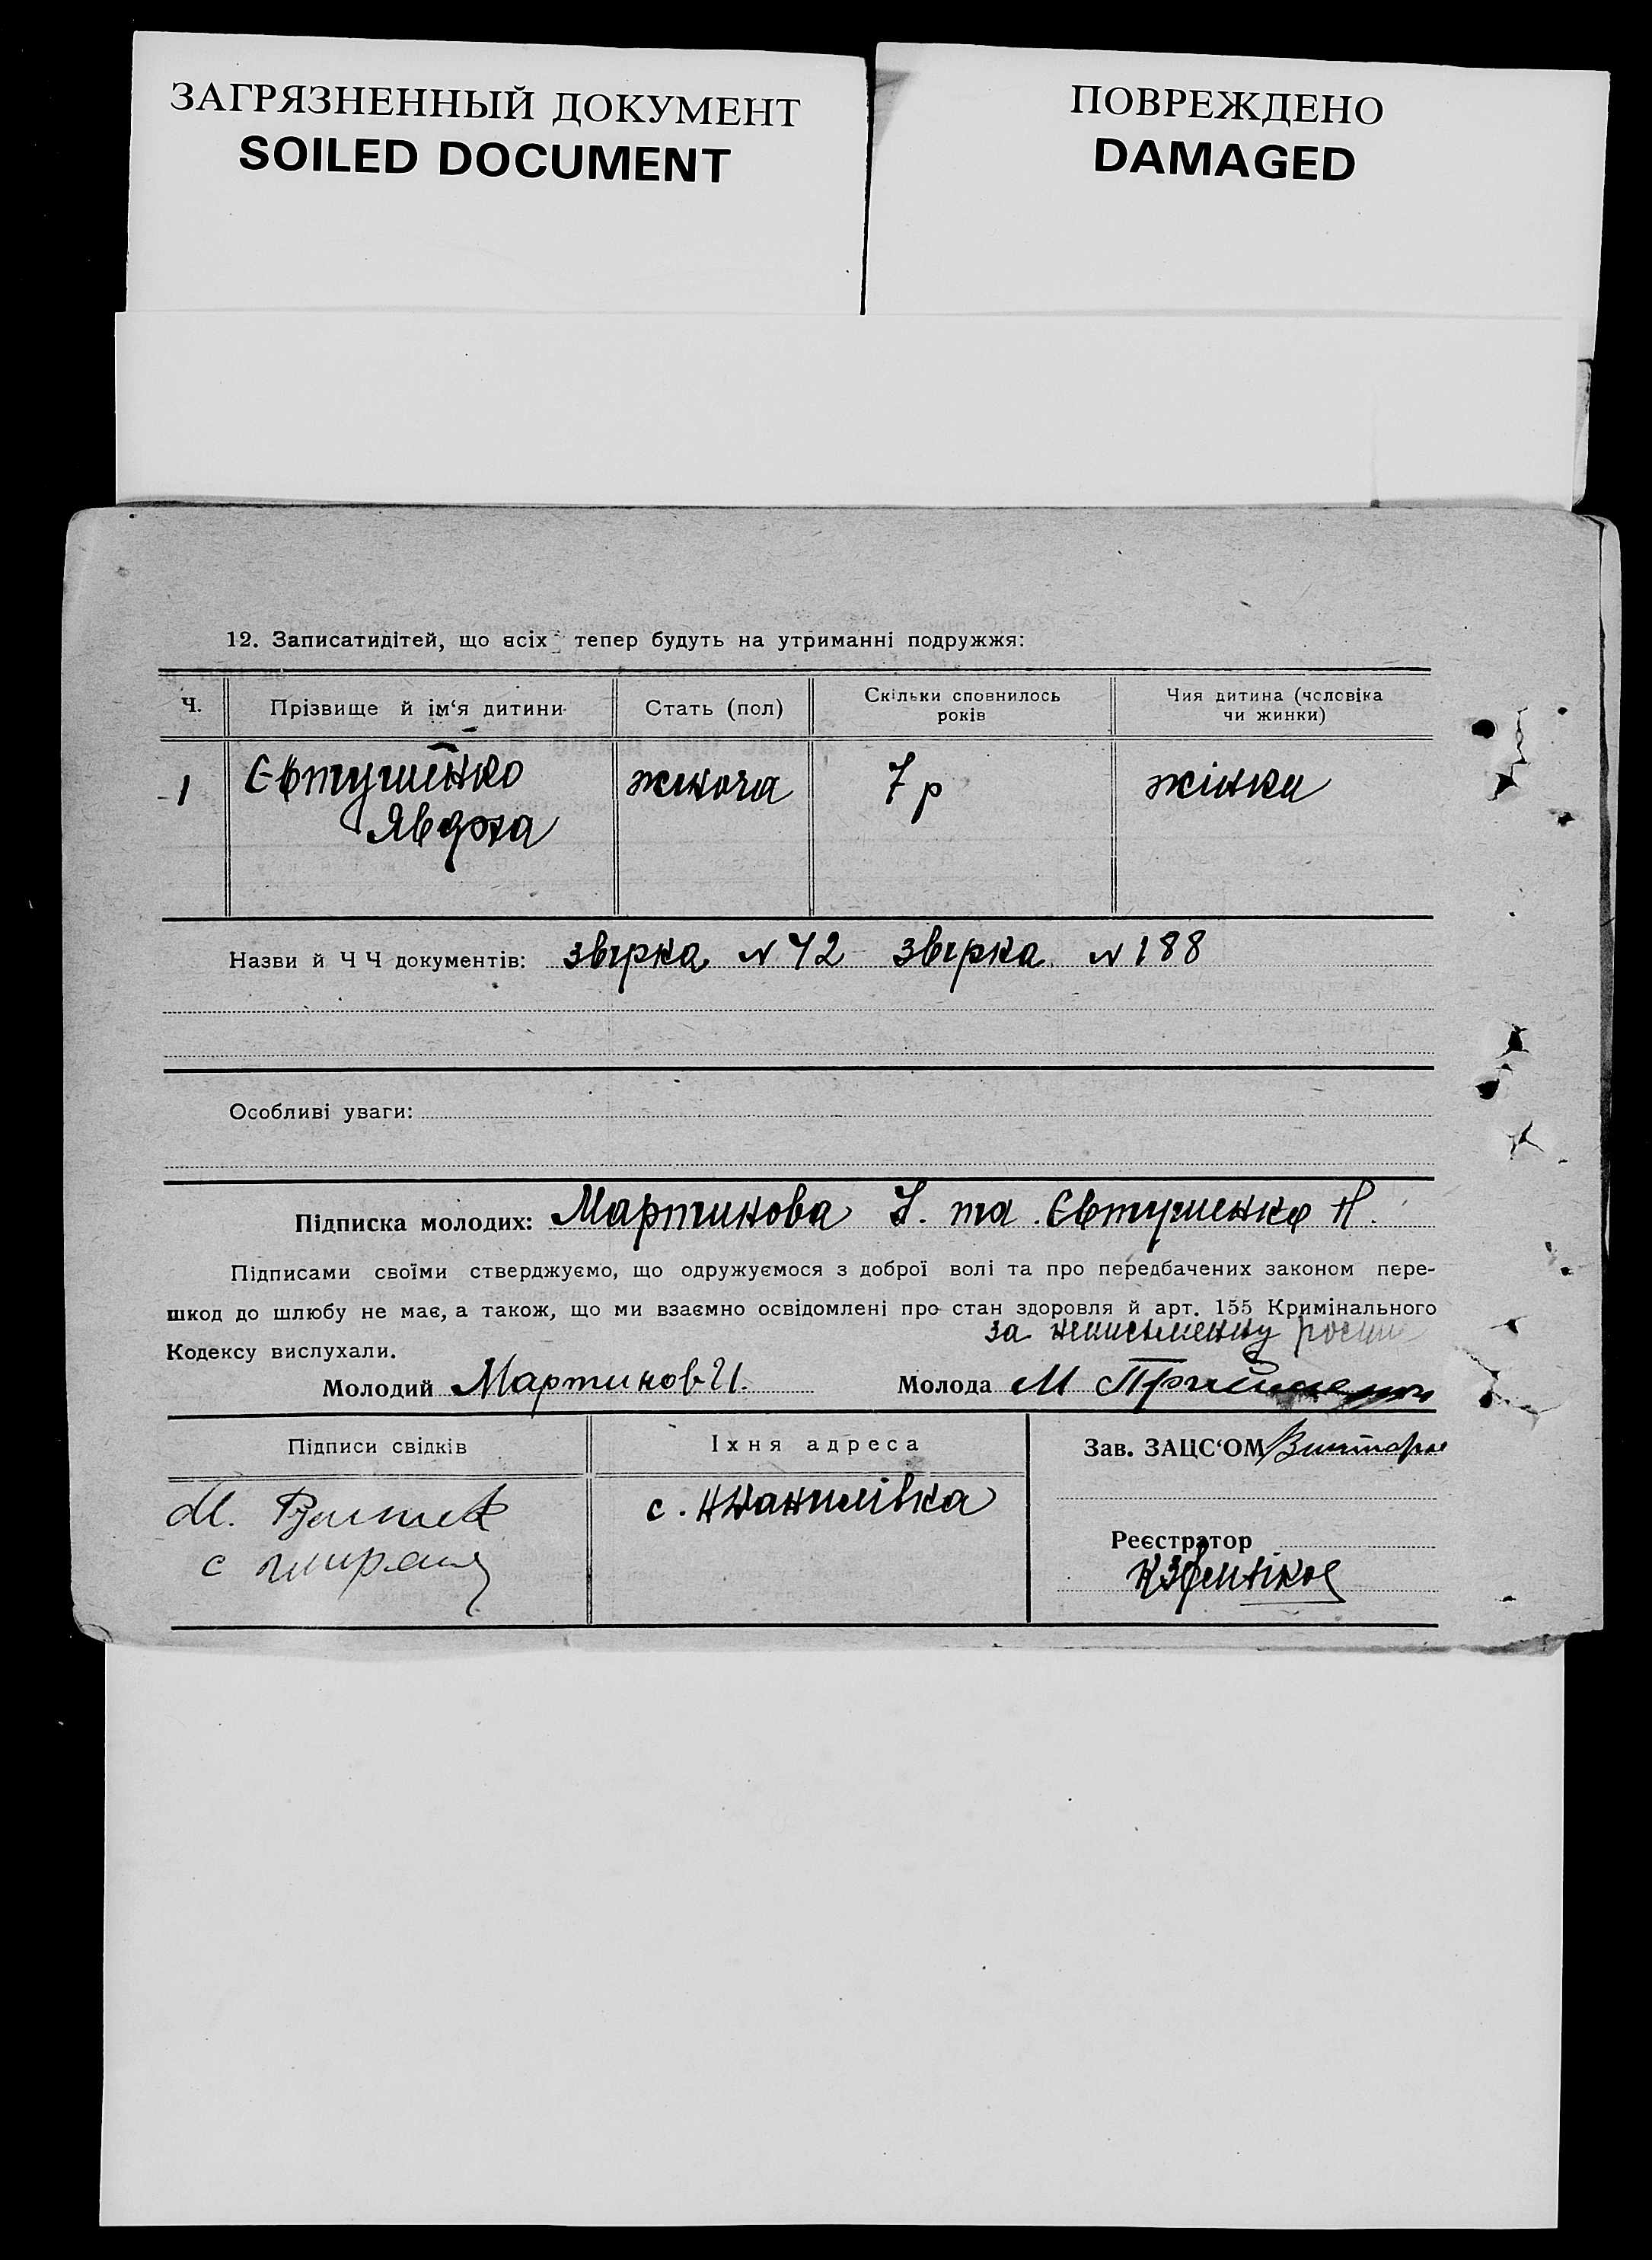 ЗАГРЯЗНЕННЫЙ ДОКУМЕНТ
SOILED DOCUMENT
ПОВРЕЖДЕНО
DAMAGED
12. Записатидітей, що всіх тепер будуть на утриманні подружжя:
Ч. Прізвище й ім‘я дитини Стать (пол) Скільки сповнилось років Чия дитина (чоловіка чи жинки)
1 Євтушенко Явдоха жиноча 7 р жінки
Назви й Ч Ч документів: звірка N 42 звірка N 188
Особливі уваги:
Підписка молодих: Мартинова І. та Євтушенко Н.
Підписами своїми стверджуємо, що одружуємося з доброї волі та про передбачених законом пере-
шкод до шлюбу не має, а також, що ми взаємно освідомлені про стан здоровля й арт. 155 Кримінального
Кодексу вислухали.
за неписьменну
Молодий Мартинов И. Молода М
Підписи свідків Їхня адреса Зав. ЗАЦС‘ОМ
М.
с.
Реєстратор